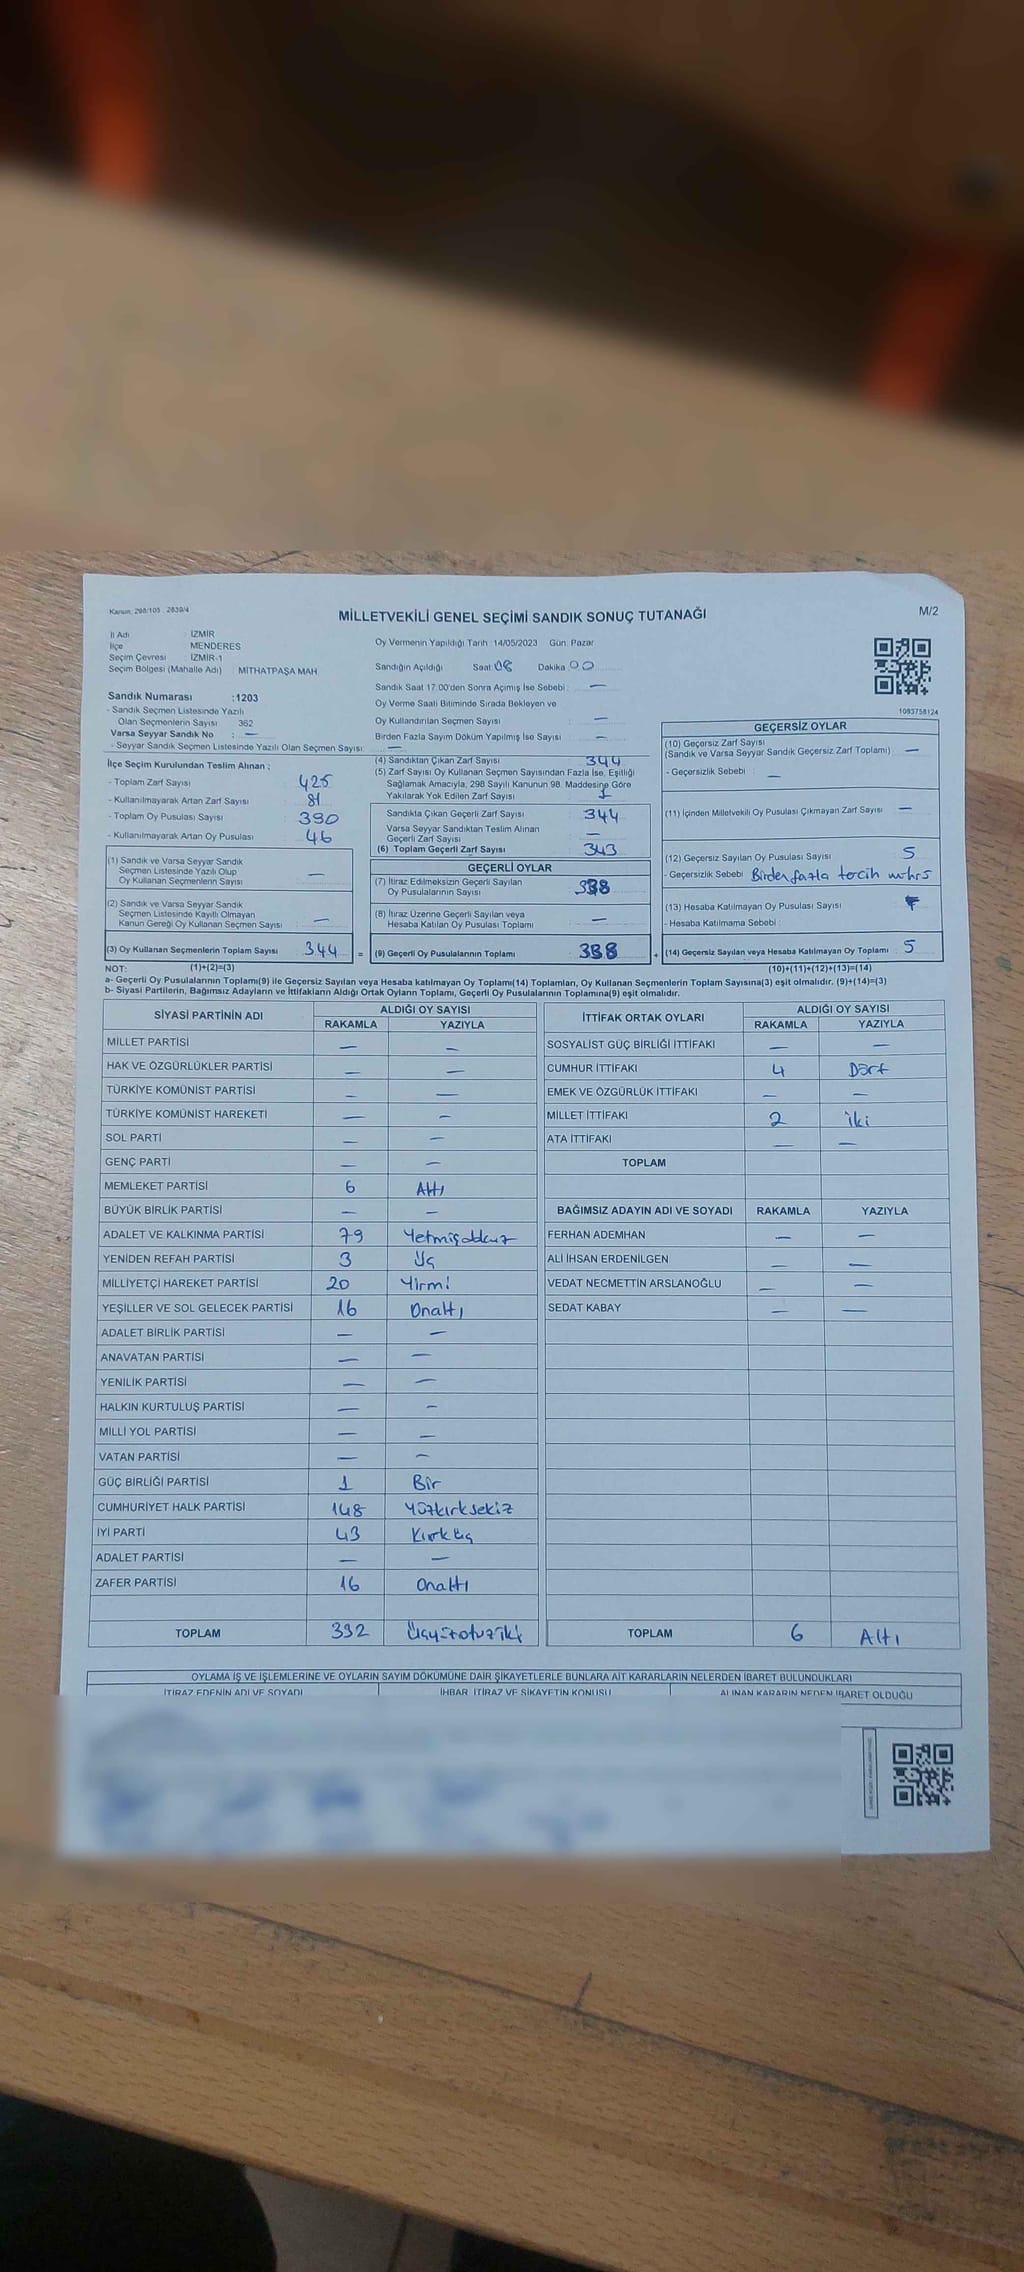 Kanun: 298/105 , 2839/4
MİLLETVEKİLİ GENEL SEÇİMİ SANDIK SONUÇ TUTANAĞI
M/2
İl Adı : İZMİR
İlçe : MENDERES
Seçim Çevresi : İZMİR-1
Seçim Bölgesi (Mahalle Adı) : MİTHATPAŞA MAH
Sandık Numarası :1203
- Sandık Seçmen Listesinde Yazılı
Olan Seçmenlerin Sayısı 362
Varsa Seyyar Sandık No : —
- Seyyar Sandık Seçmen Listesinde Yazılı Olan Seçmen Sayısı: —
Oy Vermenin Yapıldığı Tarih :14/05/2023 Gün: Pazar
Sandığın Açıldığı Saat:08 Dakika:00
Sandık Saat 17:00'den Sonra Açılmış İse Sebebi : —
Oy Verme Saati Bitiminde Sırada Bekleyen ve
Oy Kullandırılan Seçmen Sayısı : —
Birden Fazla Sayım Döküm Yapılmış İse Sayısı : —
1083758124
İlçe Seçim Kurulundan Teslim Alınan :
- Toplam Zarf Sayısı : 425
- Kullanılmayarak Artan Zarf Sayısı : 81
- Toplam Oy Pusulası Sayısı : 390
- Kullanılmayarak Artan Oy Pusulası : 46
(1) Sandık ve Varsa Seyyar Sandık
Seçmen Listesinde Yazılı Olup
Oy Kullanan Seçmenlerin Sayısı : —
(2) Sandık ve Varsa Seyyar Sandık
Seçmen Listesinde Kayıtlı Olmayan
Kanun Gereği Oy Kullanan Seçmen Sayısı : —
(3) Oy Kullanan Seçmenlerin Toplam Sayısı 344 =
(4) Sandıktan Çıkan Zarf Sayısı : 344
(5) Zarf Sayısı Oy Kullanan Seçmen Sayısından Fazla İse, Eşitliği
Sağlamak Amacıyla, 298 Sayılı Kanunun 98. Maddesine Göre
Yakılarak Yok Edilen Zarf Sayısı : 1
Sandıkta Çıkan Geçerli Zarf Sayısı : 344
Varsa Seyyar Sandıktan Teslim Alınan
Geçerli Zarf Sayısı : —
(6) Toplam Geçerli Zarf Sayısı : 343
GEÇERLİ OYLAR
(7) İtiraz Edilmeksizin Geçerli Sayılan
Oy Pusulalarının Sayısı : 338
(8) İtiraz Üzerine Geçerli Sayılan veya
Hesaba Katılan Oy Pusulası Toplamı : —
(9) Geçerli Oy Pusulalarının Toplamı 338 +
GEÇERSİZ OYLAR
(10) Geçersiz Zarf Sayısı
(Sandık ve Varsa Seyyar Sandık Geçersiz Zarf Toplamı) : —
- Geçersizlik Sebebi : —
(11) İçinden Milletvekili Oy Pusulası Çıkmayan Zarf Sayısı : —
(12) Geçersiz Sayılan Oy Pusulası Sayısı : 5
- Geçersizlik Sebebi : Birden fazla tercih
(13) Hesaba Katılmayan Oy Pusulası Sayısı :
- Hesaba Katılmama Sebebi :
(14) Geçersiz Sayılan veya Hesaba Katılmayan Oy Toplamı 5
NOT: (1)+(2)=(3) (10)+(11)+(12)+(13)=(14)
a- Geçerli Oy Pusulalarının Toplamı(9) ile Geçersiz Sayılan veya Hesaba katılmayan Oy Toplamı(14) Toplamları, Oy Kullanan Seçmenlerin Toplam Sayısına(3) eşit olmalıdır. (9)+(14)=(3)
b- Siyasi Partilerin, Bağımsız Adayların ve İttifakların Aldığı Ortak Oyların Toplamı, Geçerli Oy Pusulalarının Toplamına(9) eşit olmalıdır.
SİYASİ PARTİNİN ADI ALDIĞI OY SAYISI
RAKAMLA YAZIYLA
MİLLET PARTİSİ — —
HAK VE ÖZGÜRLÜKLER PARTİSİ — —
TÜRKİYE KOMÜNİST PARTİSİ — —
TÜRKİYE KOMÜNİST HAREKETİ — —
SOL PARTİ — —
GENÇ PARTİ — —
MEMLEKET PARTİSİ 6 Altı
BÜYÜK BİRLİK PARTİSİ — —
ADALET VE KALKINMA PARTİSİ 79 Yetmişdokuz
YENİDEN REFAH PARTİSİ 3 Üç
MİLLİYETÇİ HAREKET PARTİSİ 20 Yirmi
YEŞİLLER VE SOL GELECEK PARTİSİ 16 Onaltı
ADALET BİRLİK PARTİSİ — —
ANAVATAN PARTİSİ — —
YENİLİK PARTİSİ — —
HALKIN KURTULUŞ PARTİSİ — —
MİLLİ YOL PARTİSİ — —
VATAN PARTİSİ — —
GÜÇ BİRLİĞİ PARTİSİ 1 Bir
CUMHURİYET HALK PARTİSİ 148 Yüzkırksekiz
İYİ PARTİ 43 Kırküç
ADALET PARTİSİ — —
ZAFER PARTİSİ 16 Onaltı
TOPLAM 332 Üçyüzotuziki
İTTİFAK ORTAK OYLARI ALDIĞI OY SAYISI
RAKAMLA YAZIYLA
SOSYALİST GÜÇ BİRLİĞİ İTTİFAKI — —
CUMHUR İTTİFAKI 4 Dört
EMEK VE ÖZGÜRLÜK İTTİFAKI — —
MİLLET İTTİFAKI 2 iki
ATA İTTİFAKI — —
TOPLAM
BAĞIMSIZ ADAYIN ADI VE SOYADI RAKAMLA YAZIYLA
FERHAN ADEMHAN — —
ALİ İHSAN ERDENİLGEN — —
VEDAT NECMETTİN ARSLANOĞLU — —
SEDAT KABAY — —
TOPLAM 6 Altı
OYLAMA İŞ VE İŞLEMLERİNE VE OYLARIN SAYIM DÖKÜMÜNE DAİR ŞİKAYETLERLE BUNLARA AİT KARARLARIN NELERDEN İBARET BULUNDUKLARI
İTİRAZ EDENİN ADI VE SOYADI İHBAR, İTİRAZ VE ŞİKAYETİN KONUSU ALINAN KARARIN NEDEN İBARET OLDUĞU